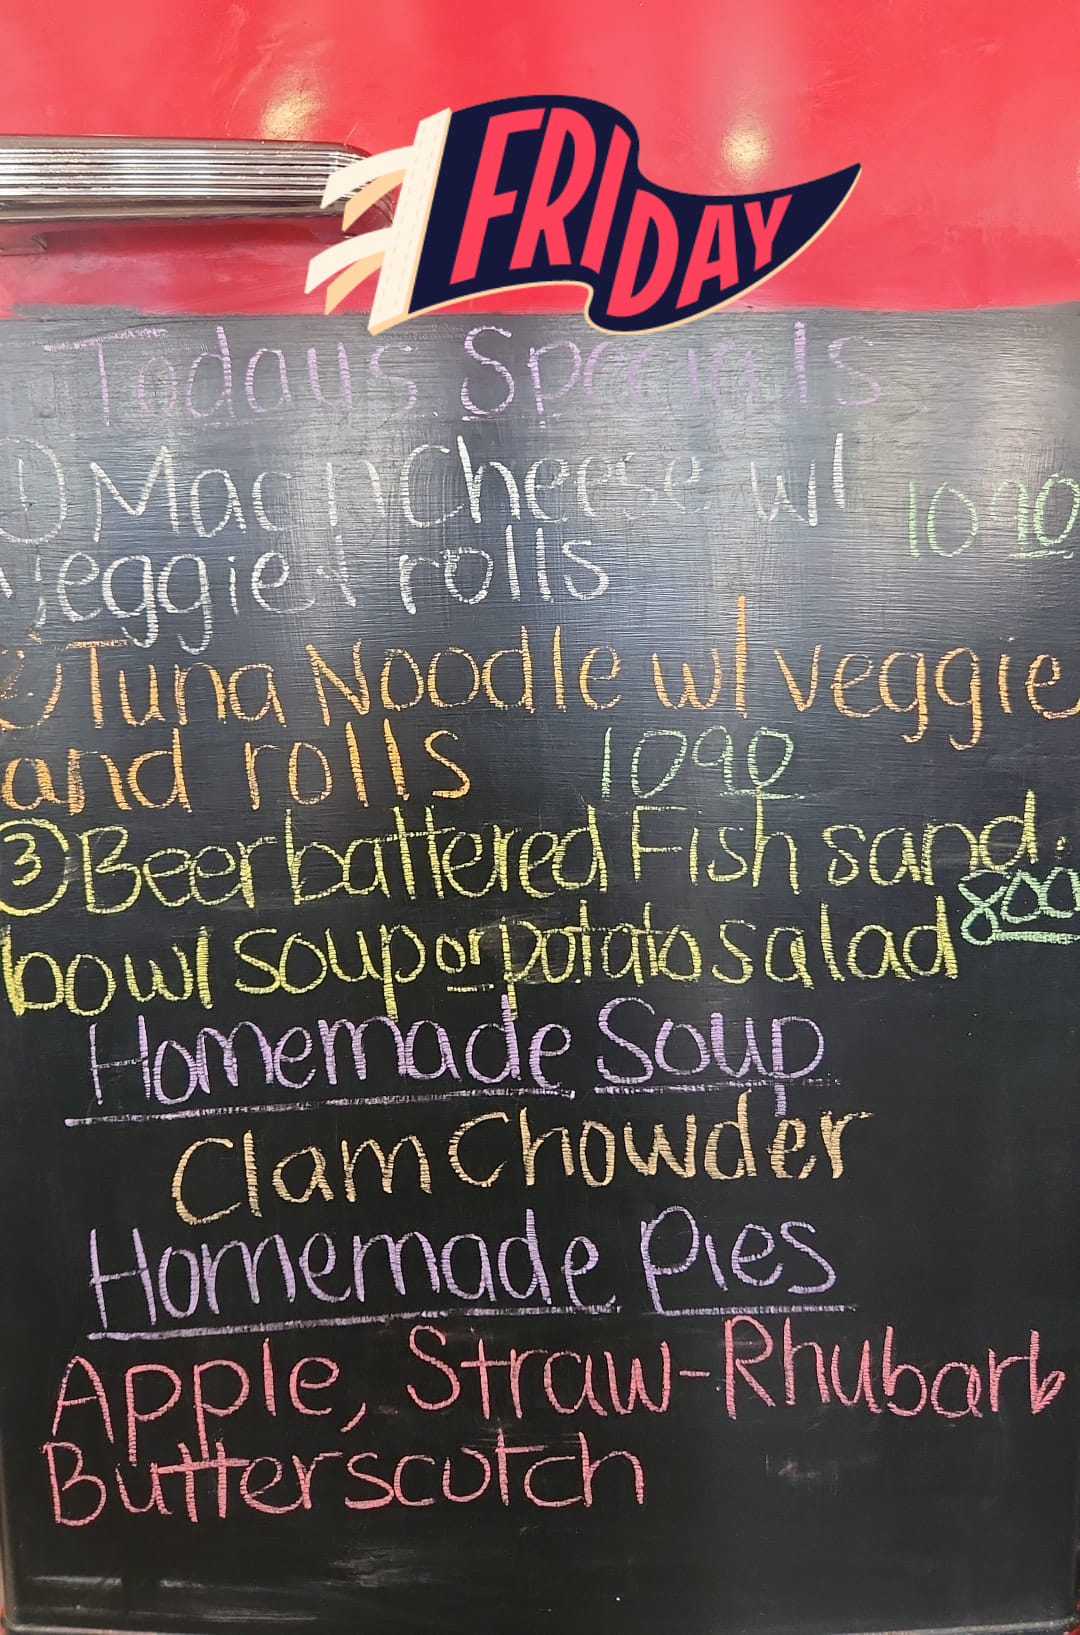 FRIDAY
Todays Specials
① Mac n Cheese w/ 10 90
Veggie + rolls
② Tuna Noodle w/ veggie
and rolls 10 90
③ Beer battered Fish sand.
bowl soup or potato salad 800
Homemade Soup
Clam Chowder
Homemade Pies
Apple, Straw-Rhubarb
Butterscotch